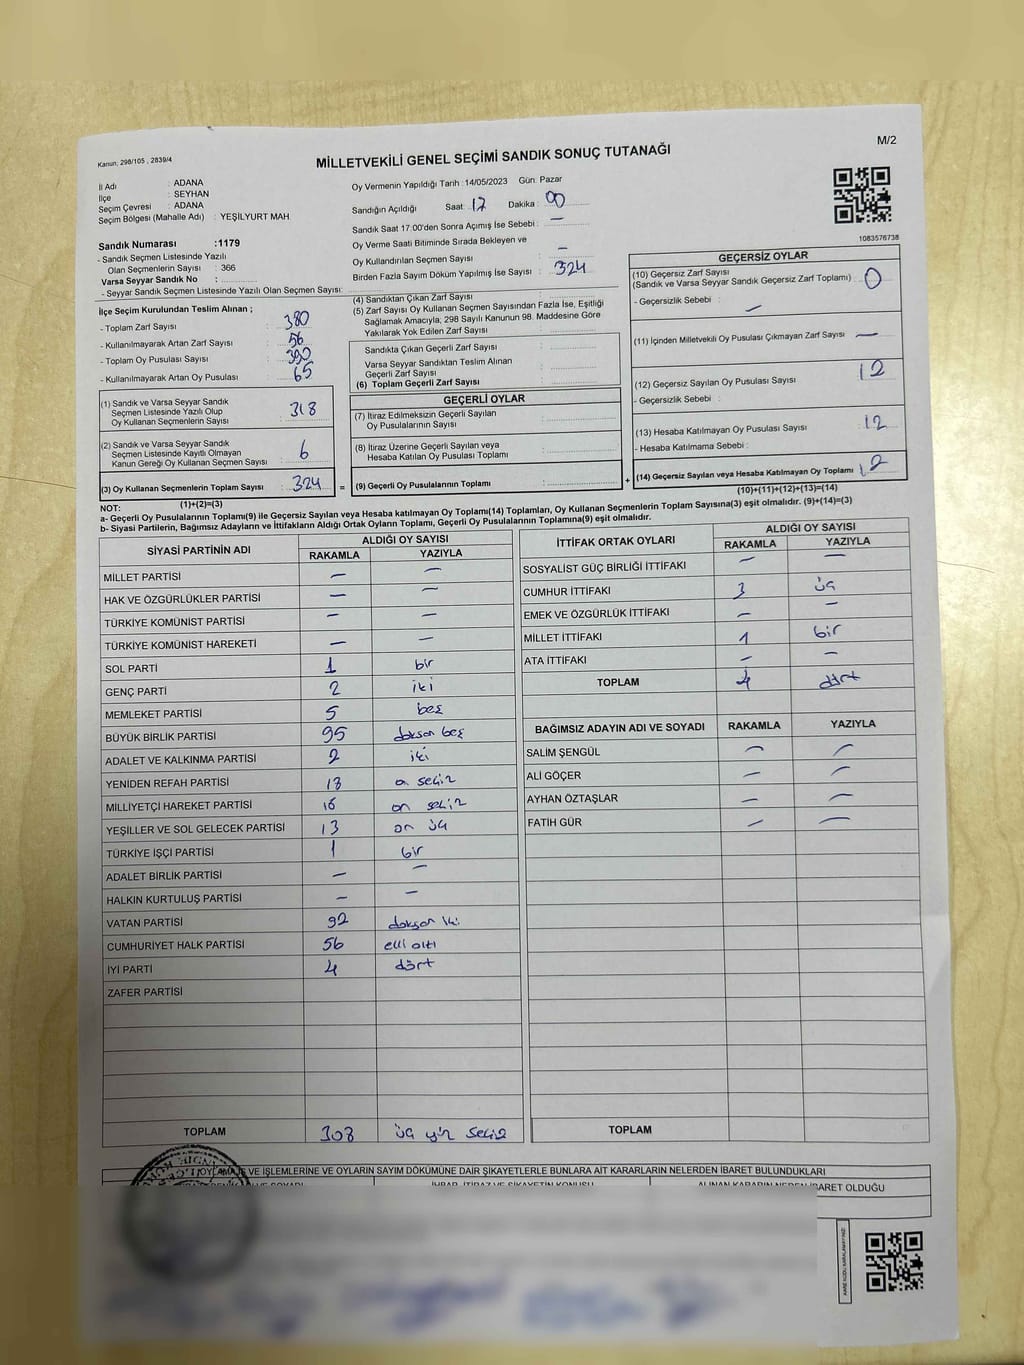 Kanun: 298/105 , 2839/4
M/2
MİLLETVEKİLİ GENEL SEÇİMİ SANDIK SONUÇ TUTANAĞI
İl Adı : ADANA
İlçe : SEYHAN
Seçim Çevresi : ADANA
Seçim Bölgesi (Mahalle Adı) : YEŞİLYURT MAH.
Sandık Numarası :1179
- Sandık Seçmen Listesinde Yazılı
Olan Seçmenlerin Sayısı : 366
Varsa Seyyar Sandık No :
- Seyyar Sandık Seçmen Listesinde Yazılı Olan Seçmen Sayısı:
Oy Vermenin Yapıldığı Tarih :14/05/2023 Gün: Pazar
Sandığın Açıldığı Saat : 17 Dakika : 00
Sandık Saat 17:00'den Sonra Açımış İse Sebebi : —
Oy Verme Saati Bitiminde Sırada Bekleyen ve
Oy Kullandırılan Seçmen Sayısı : —
Birden Fazla Sayım Döküm Yapılmış İse Sayısı : 324
1083576738
İlçe Seçim Kurulundan Teslim Alınan ;
- Toplam Zarf Sayısı : 380
- Kullanılmayarak Artan Zarf Sayısı : 56
- Toplam Oy Pusulası Sayısı :
- Kullanılmayarak Artan Oy Pusulası : 65
(1) Sandık ve Varsa Seyyar Sandık
Seçmen Listesinde Yazılı Olup
Oy Kullanan Seçmenlerin Sayısı : 318
(2) Sandık ve Varsa Seyyar Sandık
Seçmen Listesinde Kayıtlı Olmayan
Kanun Gereği Oy Kullanan Seçmen Sayısı : 6
(3) Oy Kullanan Seçmenlerin Toplam Sayısı : 324
(1)+(2)=(3)
(4) Sandıktan Çıkan Zarf Sayısı :
(5) Zarf Sayısı Oy Kullanan Seçmen Sayısından Fazla İse, Eşitliği
Sağlamak Amacıyla, 298 Sayılı Kanunun 98. Maddesine Göre
Yakılarak Yok Edilen Zarf Sayısı :
Sandıkta Çıkan Geçerli Zarf Sayısı :
Varsa Seyyar Sandıktan Teslim Alınan
Geçerli Zarf Sayısı :
(6) Toplam Geçerli Zarf Sayısı :
GEÇERLİ OYLAR
(7) İtiraz Edilmeksizin Geçerli Sayılan
Oy Pusulalarının Sayısı :
(8) İtiraz Üzerine Geçerli Sayılan veya
Hesaba Katılan Oy Pusulası Toplamı :
= (9) Geçerli Oy Pusulalarının Toplamı : +
GEÇERSİZ OYLAR
(10) Geçersiz Zarf Sayısı
(Sandık ve Varsa Seyyar Sandık Geçersiz Zarf Toplamı) : 0
- Geçersizlik Sebebi : —
(11) İçinden Milletvekili Oy Pusulası Çıkmayan Zarf Sayısı : —
(12) Geçersiz Sayılan Oy Pusulası Sayısı : 12
- Geçersizlik Sebebi :
(13) Hesaba Katılmayan Oy Pusulası Sayısı : 12
- Hesaba Katılmama Sebebi :
(14) Geçersiz Sayılan veya Hesaba Katılmayan Oy Toplamı : 12
(10)+(11)+(12)+(13)=(14)
NOT:
a- Geçerli Oy Pusulalarının Toplamı(9) ile Geçersiz Sayılan veya Hesaba katılmayan Oy Toplamı(14) Toplamları, Oy Kullanan Seçmenlerin Toplam Sayısına(3) eşit olmalıdır. (9)+(14)=(3)
b- Siyasi Partilerin, Bağımsız Adayların ve İttifakların Aldığı Ortak Oyların Toplamı, Geçerli Oy Pusulalarının Toplamına(9) eşit olmalıdır.
SİYASİ PARTİNİN ADI ALDIĞI OY SAYISI
RAKAMLA YAZIYLA
MİLLET PARTİSİ — —
HAK VE ÖZGÜRLÜKLER PARTİSİ — —
TÜRKİYE KOMÜNİST PARTİSİ — —
TÜRKİYE KOMÜNİST HAREKETİ — —
SOL PARTİ 1 bir
GENÇ PARTİ 2 iki
MEMLEKET PARTİSİ 5 beş
BÜYÜK BİRLİK PARTİSİ 95 doksan beş
ADALET VE KALKINMA PARTİSİ 2 iki
YENİDEN REFAH PARTİSİ 18 on sekiz
MİLLİYETÇİ HAREKET PARTİSİ on sekiz
YEŞİLLER VE SOL GELECEK PARTİSİ 13 on üç
TÜRKİYE İŞÇİ PARTİSİ 1 bir
ADALET BİRLİK PARTİSİ — —
HALKIN KURTULUŞ PARTİSİ — —
VATAN PARTİSİ 92 doksan iki
CUMHURİYET HALK PARTİSİ 56 elli altı
İYİ PARTİ 4 dört
ZAFER PARTİSİ
TOPLAM 308 üç yüz sekiz
İTTİFAK ORTAK OYLARI ALDIĞI OY SAYISI
RAKAMLA YAZIYLA
SOSYALİST GÜÇ BİRLİĞİ İTTİFAKI — —
CUMHUR İTTİFAKI 3 üç
EMEK VE ÖZGÜRLÜK İTTİFAKI — —
MİLLET İTTİFAKI 1 bir
ATA İTTİFAKI — —
TOPLAM 4 dört
BAĞIMSIZ ADAYIN ADI VE SOYADI RAKAMLA YAZIYLA
SALİM ŞENGÜL — —
ALİ GÖÇER — —
AYHAN ÖZTAŞLAR — —
FATİH GÜR — —
TOPLAM
VE İŞLEMLERİNE VE OYLARIN SAYIM DÖKÜMÜNE DAİR ŞİKAYETLERLE BUNLARA AİT KARARLARIN NELERDEN İBARET BULUNDUKLARI
İHBAR, İTİRAZ VE ŞİKAYETİN KONUSU ALINAN KARARIN NEDEN İBARET OLDUĞU